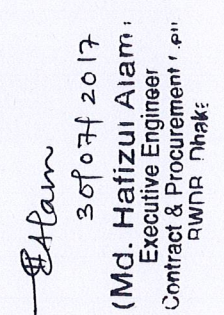 Alam
30/07/2017
(Md. Hafizul Alam)
Executive Engineer
Contract & Procurement
BWDB Dhaka